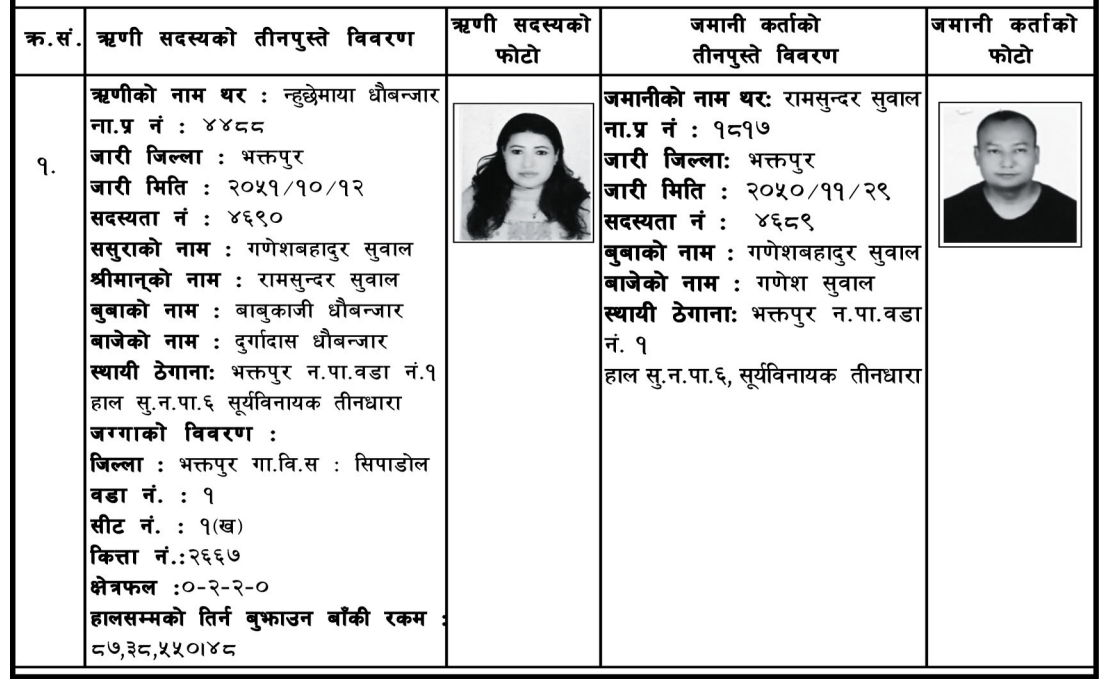 क्र.सं.
ऋणी सदस्यको तीनपुस्ते विवरण
ऋणी सदस्यको
फोटो
जमानी कर्ताको
तीनपुस्ते विवरण
जमानी कर्ताको
फोटो
१.
ऋणीको नाम थर : न्हुछेमाया धौबन्जार
ना.प्र नं : ४४८८
जारी जिल्ला : भक्तपुर
जारी मिति : २०५१/१०/१२
सदस्यता नं : ४६९०
ससुराको नाम : गणेशबहादुर सुवाल
श्रीमान्को नाम : रामसुन्दर सुवाल
बुबाको नाम : बाबुकाजी धौबन्जार
बाजेको नाम : दुर्गादास धौबन्जार
स्थायी ठेगाना: भक्तपुर न.पा.वडा नं.१
हाल सु.न.पा.६ सूर्यविनायक तीनधारा
जग्गाको विवरण :
जिल्ला : भक्तपुर गा.वि.स : सिपाडोल
वडा नं. : १
सीट नं. : १(ख)
कित्ता नं.:२६६७
क्षेत्रफल :०-२-२-०
हालसम्मको तिर्न बुझाउन बाँकी रकम :
८७,३८,५५०।४८
जमानीको नाम थर: रामसुन्दर सुवाल
ना.प्र नं : १८१७
जारी जिल्ला: भक्तपुर
जारी मिति : २०५०/११/२९
सदस्यता नं : ४६८९
बुबाको नाम : गणेशबहादुर सुवाल
बाजेको नाम : गणेश सुवाल
स्थायी ठेगाना: भक्तपुर न.पा.वडा
नं. १
हाल सु.न.पा.६, सूर्यविनायक तीनधारा